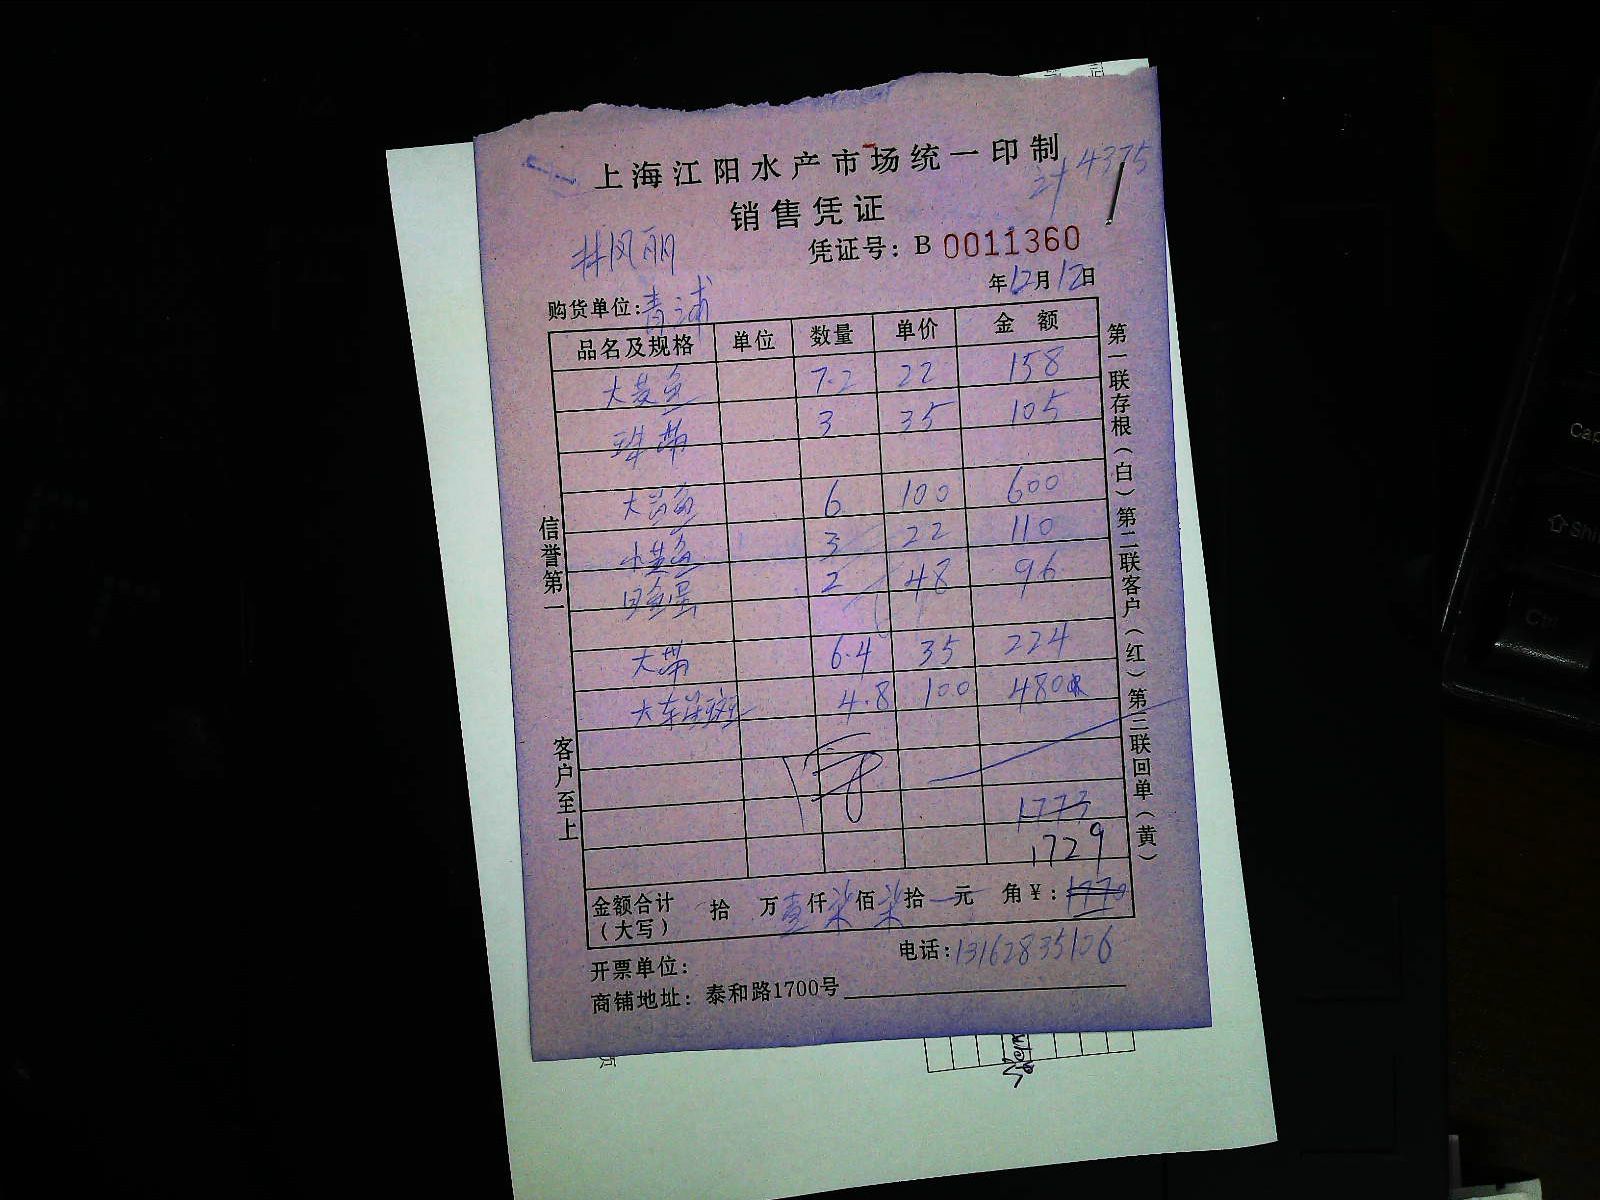 上海江阳水产市场统一印制
计4375
销售凭证
林凤丽
凭证号：B 0011360
年12月12日
购货单位：青浦
品名及规格 单位 数量 单价 金额
大菱鱼 7.2 22 158
珠带 3 35 105
大黄鱼 6 100 600
小黄鱼 3 22 110
目鱼蛋 2 48 96
大带 6.4 35 224
大东星斑 4.8 100 480
1773
1729
金额合计（大写） 拾 万壹仟柒佰柒拾一元 角¥：1770
电话：13162835106
开票单位：
商铺地址：泰和路1700号
信誉第一
客户至上
第一联存根（白）第二联客户（红）第三联回单（黄）